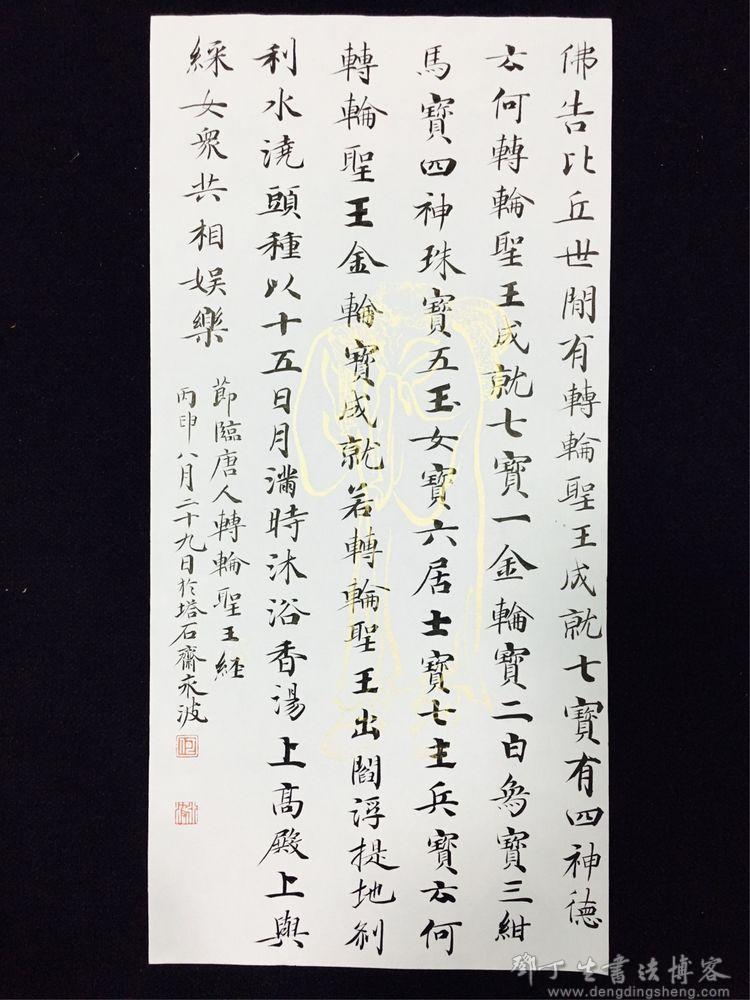 佛告比丘世間有轉輪聖王成就七寶有四神德
云何轉輪聖王成就七寶一金輪寶二白象寶三紺
馬寶四神珠寶五玉女寶六居士寶七主兵寶云何
轉輪聖王金輪寶成就若轉輪聖王出閻浮提地剎
利水澆頭種以十五日月滿時沐浴香湯上高殿上與
綵女眾共相娛樂
節臨唐人轉輪聖王經
丙申八月二十九日於塔石齋永波
鄧丁生書法博客
www.dengdingsheng.com